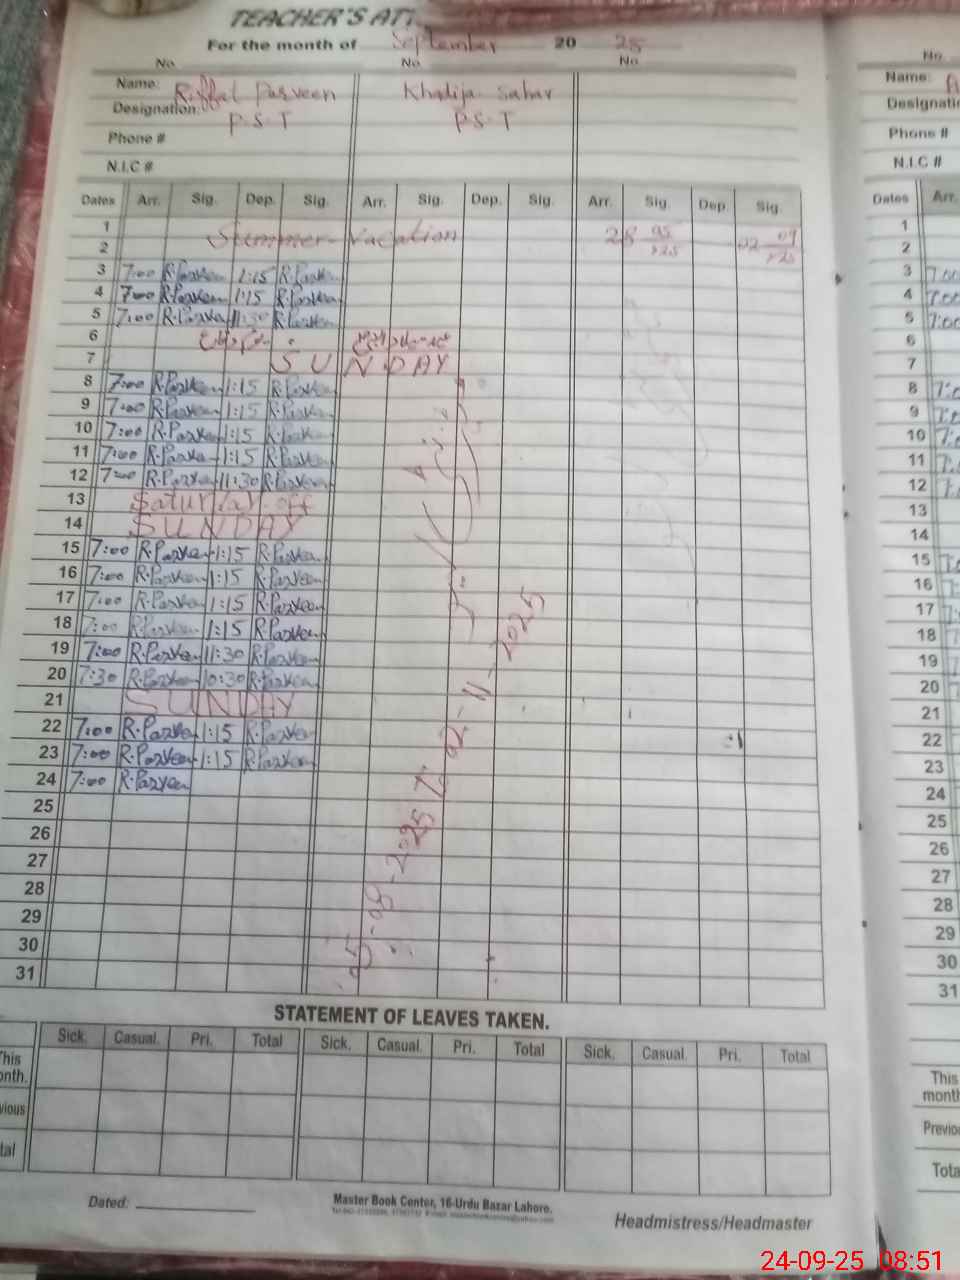 TEACHER'S ATT
For the month of September 20 25
No. No. No.
Name: Riffat Parveen Khadija Sahar
Designation: P.S.T P.S.T
Phone #
N.I.C #
Dates Arr. Sig. Dep. Sig. Arr. Sig. Dep. Sig. Arr. Sig. Dep. Sig.
1
Summer Vacation
2
3 7:00 R.Parveen 1:15 R.Parveen
4 7:00 R.Parveen 1:15 R.Parveen
5 7:00 R.Parveen 11:30 R.Parveen
6
7 SUNDAY
8 7:00 R.Parveen 1:15 R.Parveen
9 7:00 R.Parveen 1:15 R.Parveen
10 7:00 R.Parveen 1:15 R.Parveen
11 7:00 R.Parveen 1:15 R.Parveen
12 7:00 R.Parveen 11:30 R.Parveen
13 Saturday off
14 SUNDAY
15 7:00 R.Parveen 1:15 R.Parveen
16 7:00 R.Parveen 1:15 R.Parveen
17 7:00 R.Parveen 1:15 R.Parveen
18 7:00 R.Parveen 1:15 R.Parveen
19 7:00 R.Parveen 11:30 R.Parveen
20 7:30 R.Parveen 10:30 R.Parveen
21 SUNDAY
22 7:00 R.Parveen 1:15 R.Parveen
23 7:00 R.Parveen 1:15 R.Parveen
24 7:00 R.Parveen
25
26
27
28
29
30
31
STATEMENT OF LEAVES TAKEN.
Sick. Casual. Pri. Total Sick. Casual. Pri. Total Sick. Casual. Pri. Total
This
onth.
vious
tal
Dated:
Master Book Center, 16-Urdu Bazar Lahore.
Headmistress/Headmaster
No.
Name:
Designati
Phone #
N.I.C #
Dates Arr.
1
2
3 7:00
4 7:00
5 7:00
6
7
8
9
10
11
12
13
14
15
16
17
18
19
20
21
22
23
24
25
26
27
28
29
30
31
This
month
Previou
Tota
24-09-25 08:51